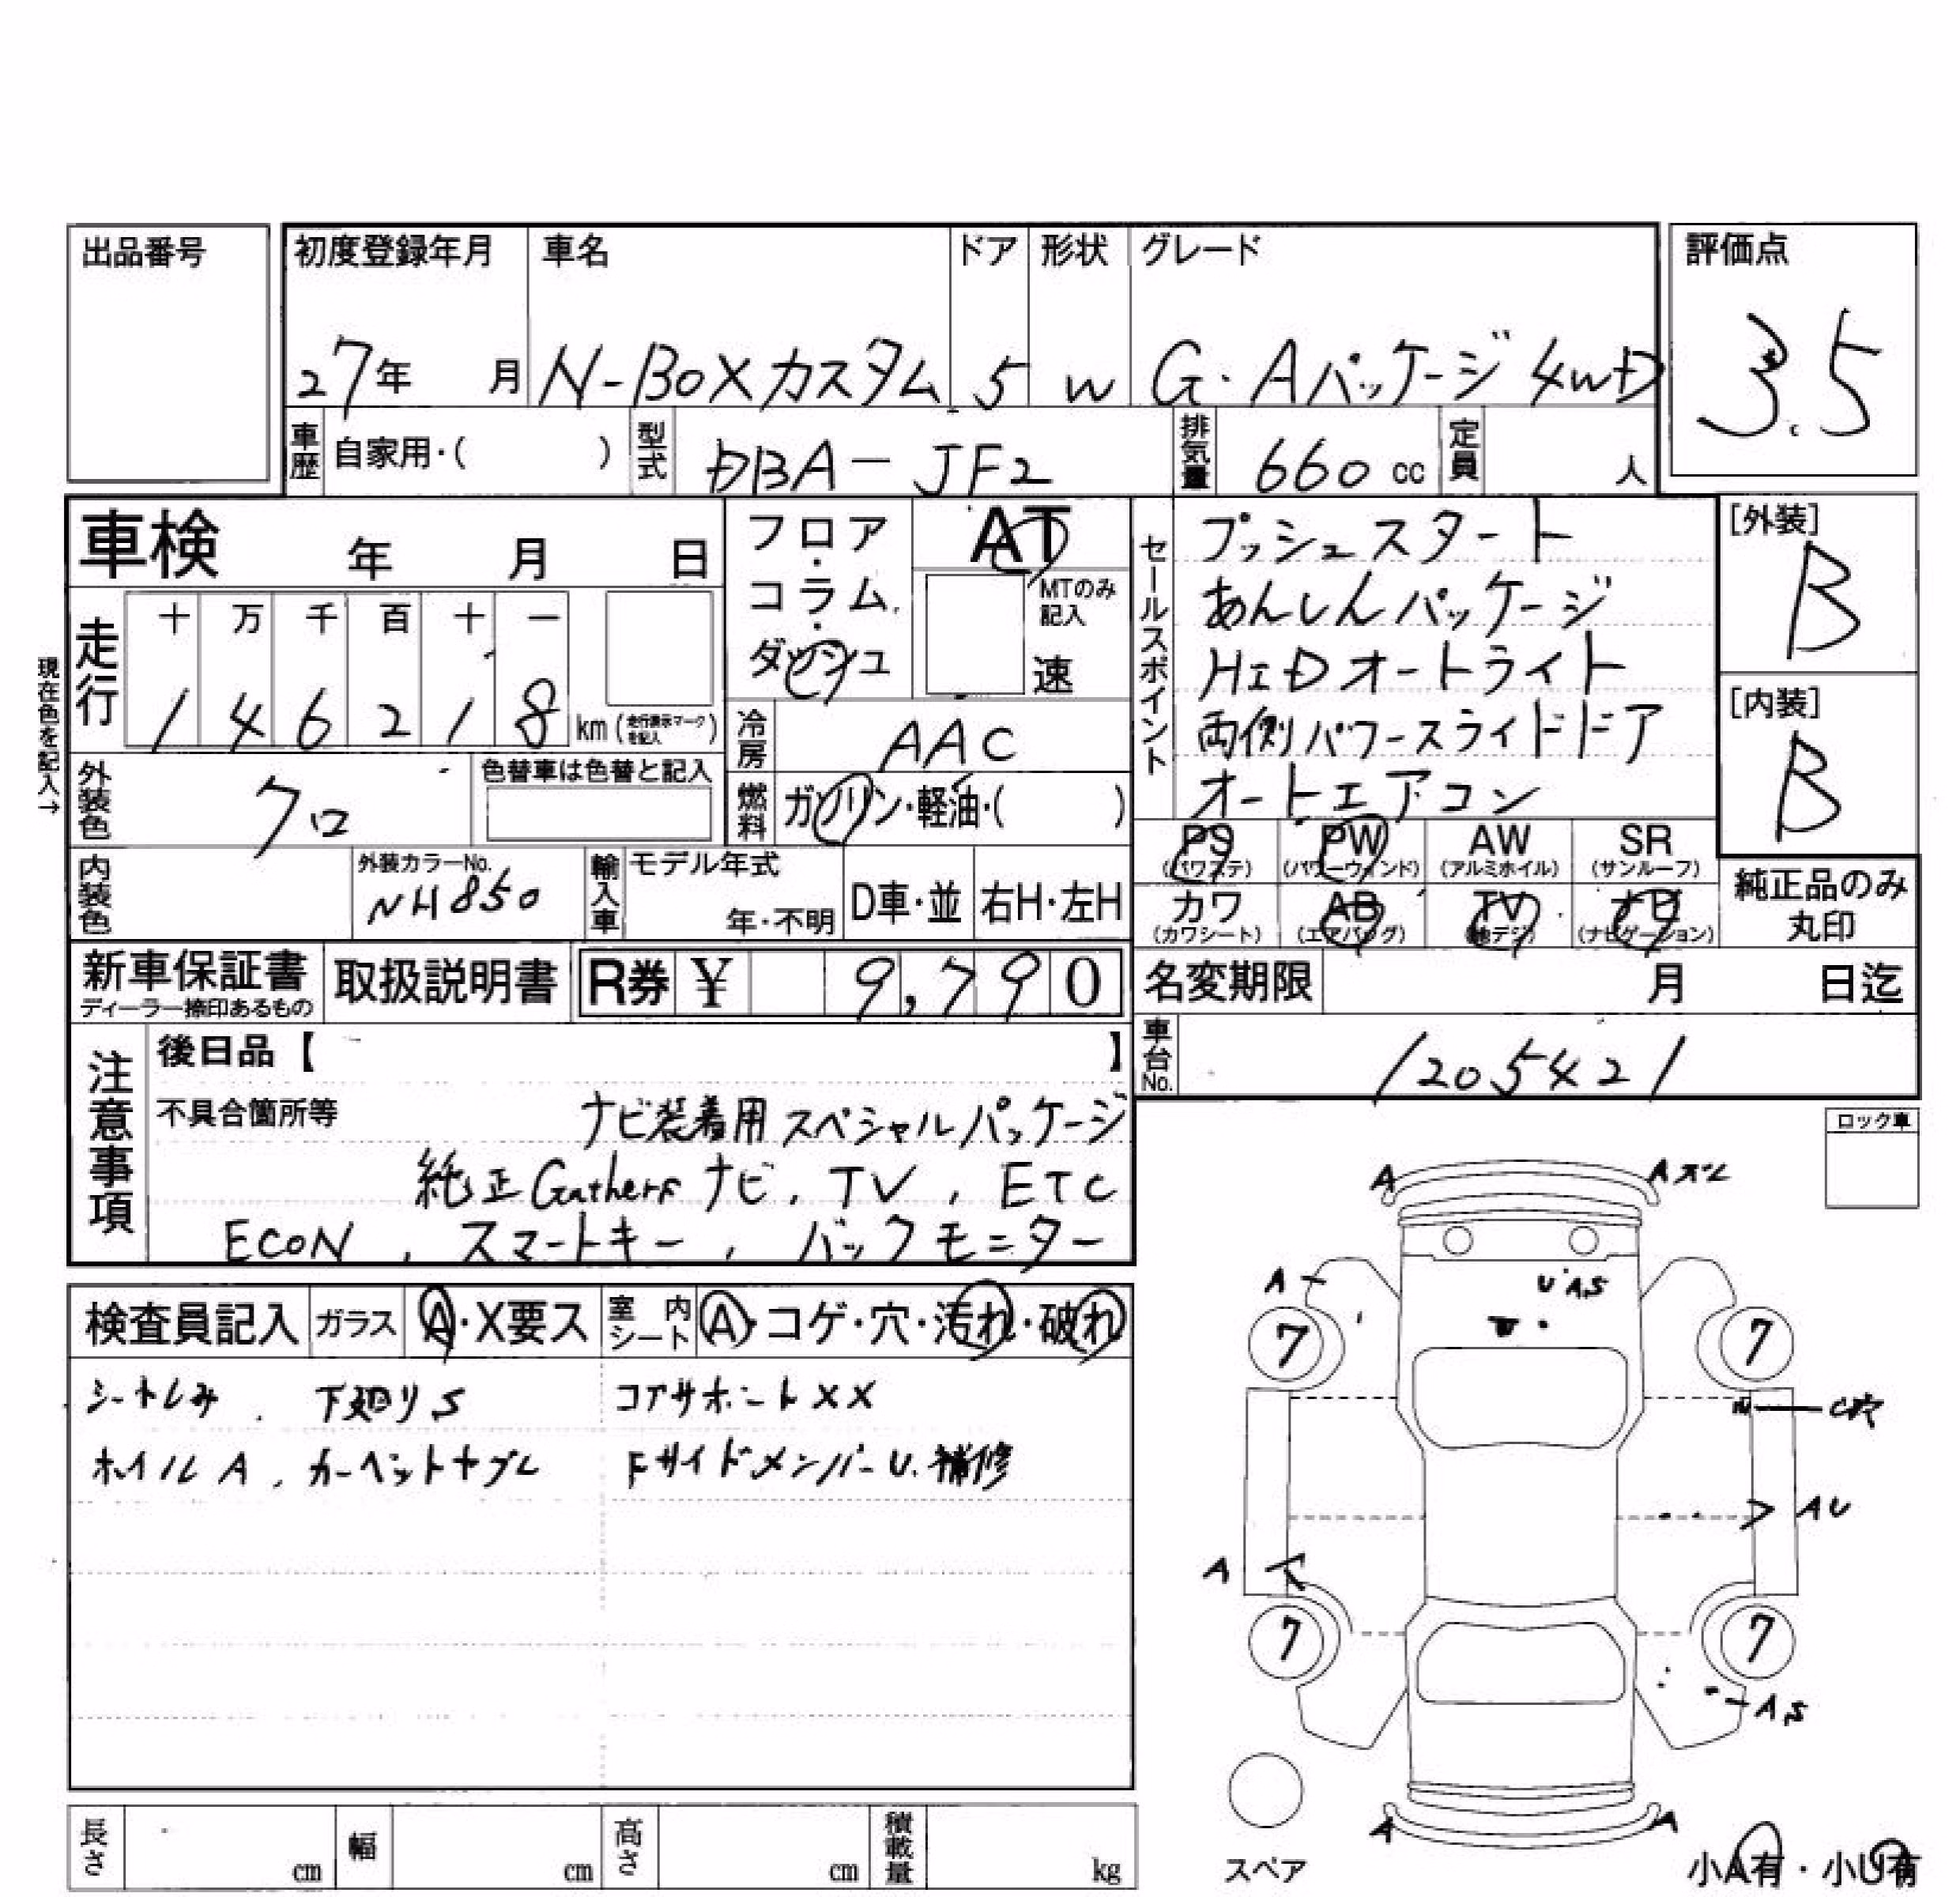 出品番号
初度登録年月 車名 ドア 形状 グレード
評価点
27年 月 N-BOXカスタム 5 W G・Aパッケージ 4WD
3.5
車歴 自家用・( ) 型式 DBA-JF2 排気量 660 cc 定員 人
車検 年 月 日
フロア・コラム・ダッシュ
AT
MTのみ記入
速
セールスポイント
プッシュスタート
あんしんパッケージ
HIDオートライト
両側パワースライドドア
オートエアコン
[外装]
B
[内装]
B
現在色を記入→
走行 十 万 千 百 十 一
1 4 6 2 1 8 km (走行表示マークを記入)
冷房 AAC
外装色 クロ 色替車は色替と記入
燃料 ガソリン・軽油・( )
PS (パワステ) PW (パワーウィンド) AW (アルミホイル) SR (サンルーフ)
カワ (カワシート) AB (エアバッグ) TV (地デジ) ナビ (ナビゲーション)
純正品のみ丸印
内装色 外装カラーNo. NH850 輸入車 モデル年式 年・不明 D車・並 右H・左H
新車保証書 ディーラー捺印あるもの 取扱説明書 R券 ¥ 9,790
名変期限 月 日迄
車台No. 1205421
注意事項
後日品【 】
不具合箇所等 ナビ装着用スペシャルパッケージ
純正Gathersナビ、TV、ETC
ECON、スマートキー、バックモニター
ロック車
検査員記入 ガラス A・X要ス 室内シート A・コゲ・穴・汚れ・破れ
シートしみ、下廻りS コアサポートXX
ホイルA、カーペットヤブレ FサイドメンバーU、補修
A Aズレ
A U A,S
7 7
C穴
A U
A
7 7
A,S
A A
スペア
小A有・小U有
長さ cm 幅 cm 高さ cm 積載量 kg